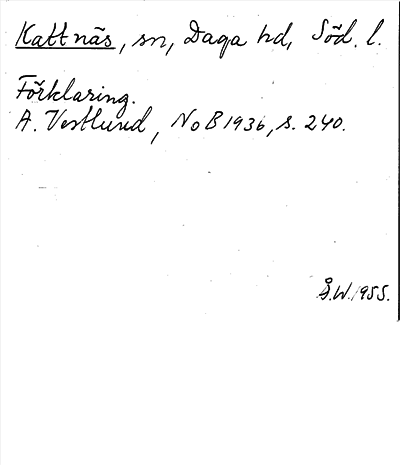 Kattnäs, sn, Daga hd, Söd. l.
Förklaring.
A. Vestlund, NoB 1936, s. 240.
Å.W. 1955.